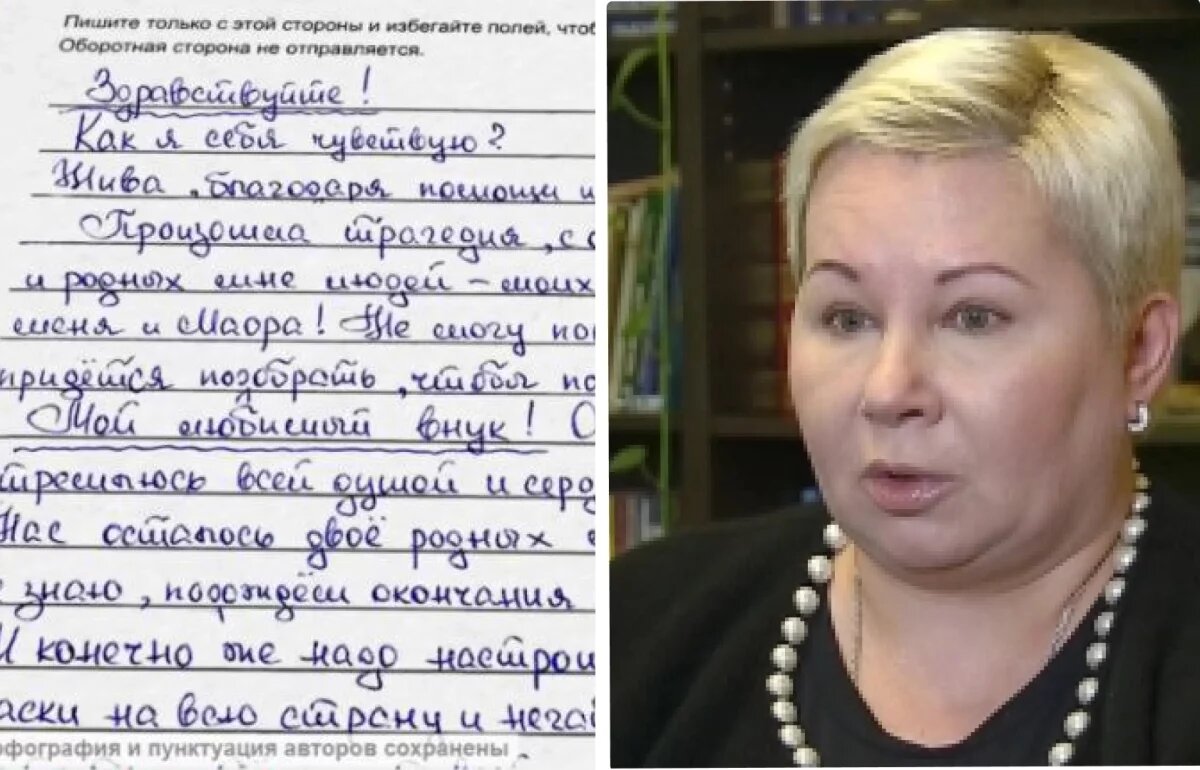 Пишите только с этой стороны и избегайте полей, чтоб
Оборотная сторона не отправляется.
Здравствуйте!
Как я себя чувствую?
Жива, благодаря помощи и
Произошла трагедия, с
и родных мне людей – моих
меня и Маора! Не могу по
придётся позбрать, чтбол по
Мой любимый внук! О
тремлюсь всей душой и серд
Нас осталось двоё родных
знаю, подождём окончания
И конечно же надо настрои
аски на всю страну и нега
рфография и пунктуация авторов сохранены